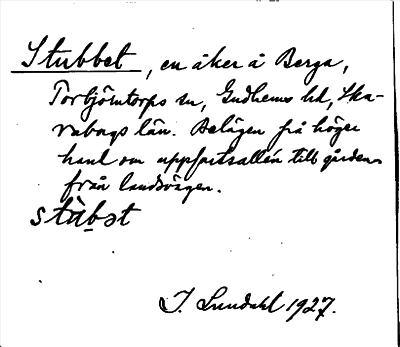 Stubbet, en åker å Berga,
Torbjörntorps sn, Gudhems hd, Ska-
rabogs län. Belägen på höger
hand om uppfartsallén till gården
från landsvägen.
stùbət
I. Lundahl 1927.